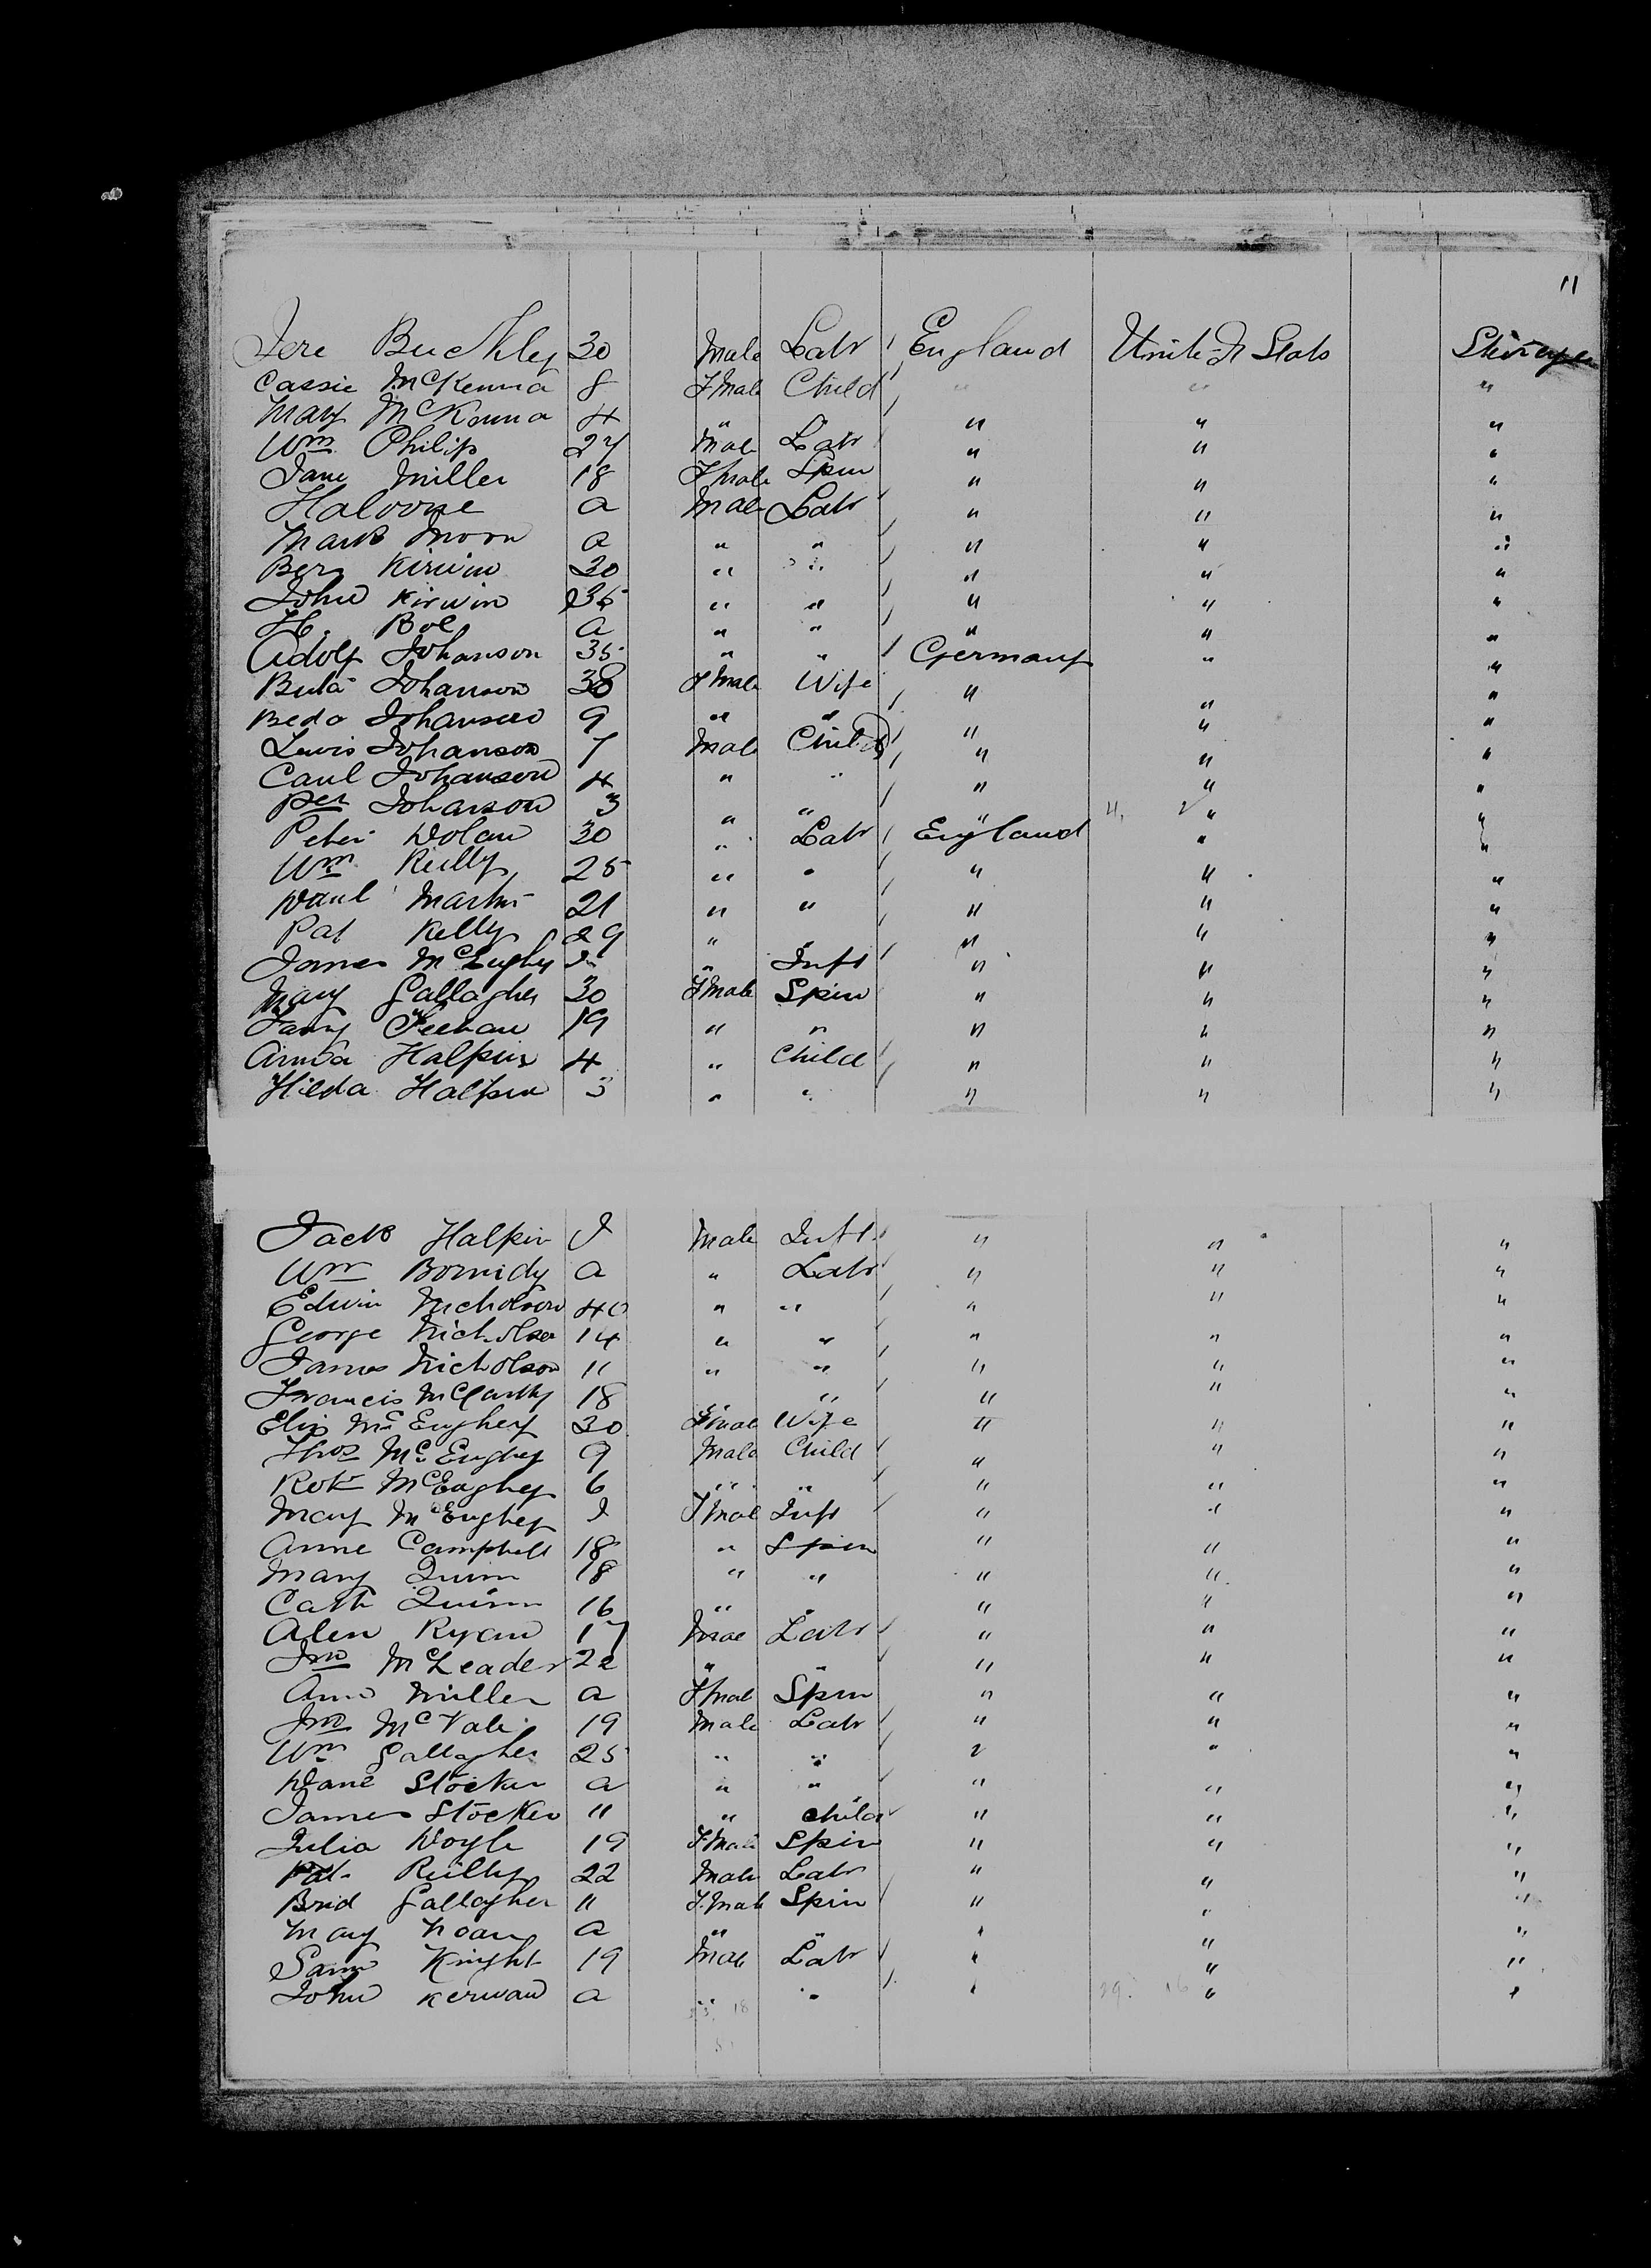 11
Jere Buckley 30 Male Labr England United Stats Steerage
Cassie McKenna 8 Fmale Child " " "
Mary McKenna 4 " " " " "
Wm Philip 27 Male Labr " " "
Jane Miller 18 Fmale Spin " " "
a Male Labr " " "
Mark Moon a " " " " "
Kirwin 30 " " " " "
John Kirwin 35 " " " " "
H. Bol a " " " " "
Adolf Johanson 35 " " Germany " "
Johanson 38 Fmale Wife " " "
Beda Johanson 9 " " " " "
Lewis Johanson 7 Male Child " " "
Carl Johanson 4 " " " " "
Per Johanson 3 " " " " "
Peter Dolan 30 " Labr England " "
Wm Reilly 25 " " " " "
Danl Martin 21 " " " " "
Pat Kelly 29 " " " " "
James McEughy I " Inft " " "
Mary Gallagher 30 Fmale Spin " " "
Fanny Feehan 19 " " " " "
Halpin 4 " Child " " "
Hilda Halpin 3 " " " " "
Jack Halpin I Male Inft " " "
Wm Bornidy a " Labr " " "
Edwin Nicholson 40 " " " " "
George Nicholson 14 " " " " "
James Nicholson 11 " " " " "
Francis McCarthy 18 " " " " "
Eliz McEughey 30 Fmale Wife " " "
Thos McEughey 9 Male Child " " "
Robt McEughey 6 " " " " "
Mary McEughey I Fmale Inft " " "
Anne Campbell 18 " Spin " " "
Mary Quinn 18 " " " " "
Cath Quinn 16 " " " " "
Alen Ryan 17 Male Labr " " "
Jno McLeader 22 " " " " "
Ann Miller a Fmale Spin " " "
Jno McVale 19 Male Labr " " "
Wm Gallagher 25 " " " " "
Dane Stocker a " " " " "
James Stocker 11 " child " " "
Julia Doyle 19 Fmale Spin " " "
Pat Reilly 22 Male Labr " " "
Brid Gallagher 11 Fmale Spin " " "
Mary Noan a " " " " "
Saml Knight 19 Male Labr " " "
John Kerwan a " " " " "